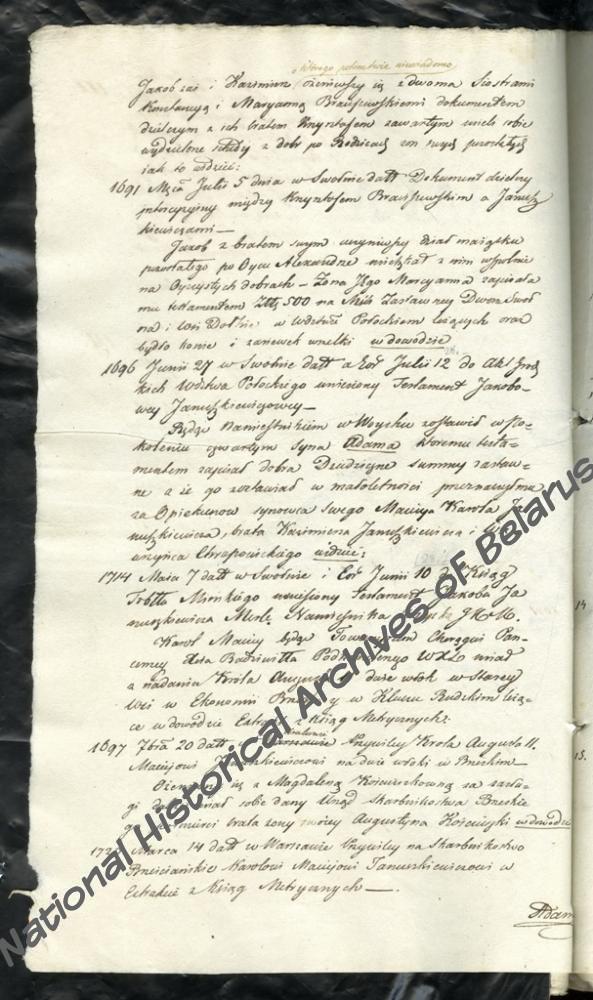 którego potomstwie niewiadomo
Jakob zaś i Kazimierz ożeniwszy się z dwoma Siostrami
Konstancyą i Maryanną Braiszewskiemi dokumentem
dzielczym z ich bratem Krzysztofem zawartym wiele sobie
wydzielone schedy z dobr po Rodzicach
iak to widzieć:
1691 Mca Julii 5 dnia w Swolnie datt Dokument dzielczy
intercyzyjny między Krzysztofem Braiszewskim a Janusz
kiewiczami —
Jakob z bratem swym uczyniwszy dział maiątku
pozostałego po Oycu Alexandrze mieszkał z nim wspolnie
na Oyczystych dobrach — Żona Jego Maryanna zapisała
mu testamentem Złł 500 na
na i wsi w Wdztwie Połockiem leżących oraz
bydło konie i wszelki w dowodzie
1696 Junii 27 w Swolnie datt a Julii 12 do Akt Grodz
kich Wdztwa Połockiego wniesiony Testament Jakobo-
wey Januszkiewiczowey —
Będąc Namiestnikiem w Woysku zostawił w Po-
koleniu czwartym syna Adama ktoremu testa-
mentem zapisał dobra Dziedziczne summy zastaw-
ne a że go zostawiał w małoletności przeznaczył mu
za Opiekunow synowca swego Macieja Karola Ja
nuszkiewicza, brata Kazimierza Januszkiewicza i
Chrapowickiego widzieć:
1714 Maia 7 datt w Swolnie i Junii 10 do Xiąg
Trbłło Minskiego wniesiony Testament Jakoba Ja
nuszkiewicza Namiesnika J K M.
Karol Maciey będąc Towarzyszem Chorągwi Pan-
cerney Radziwiłła WXL miał
z nadania Krola Augusta dwie włok w Starey
wsi w Ekonomii Brzeskiey w Kluczu Rudzkim leżą-
ce w dowodzie Extrakt z Xiąg Metrycznych:
1697 7bra 20 datt Przywiley Krola Augusta II.
Maciejowi Januszkiewiczowi na dwie włoki w Brzeskim —
Ożeniwszy się z Magdaleną Kościuszkowną za zasłu-
gi miał sobie dany Urząd Skarbnikostwa Brzeskie
śmierci brata żony swoiey Augustyna Kościuszki w dowodzie
Marca 14 datt w Warszawie Przywiley na Skarbnikostwo
Brześciańskie Karolowi Maciejowi Januszkiewiczowi w
Extrakcie z Xiąg Metrycznych —
Adam
14
15.
National Historical Archives of Belarus